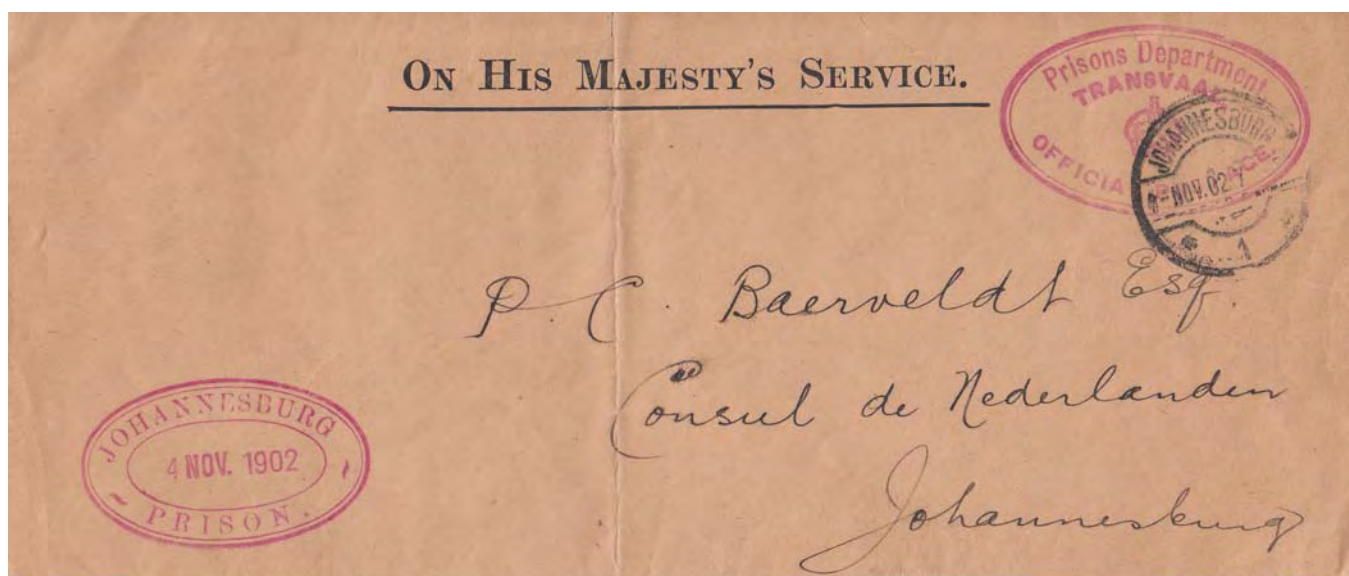 ON HIS MAJESTY'S SERVICE.
Prisons Department
TRANSVAAL
OFFICIAL
JOHANNESBURG
NOV. 02
1
P. C. Baerveldt Esq.
Consul de Nederlanden
Johannesburg
JOHANNESBURG
4 NOV. 1902
PRISON.